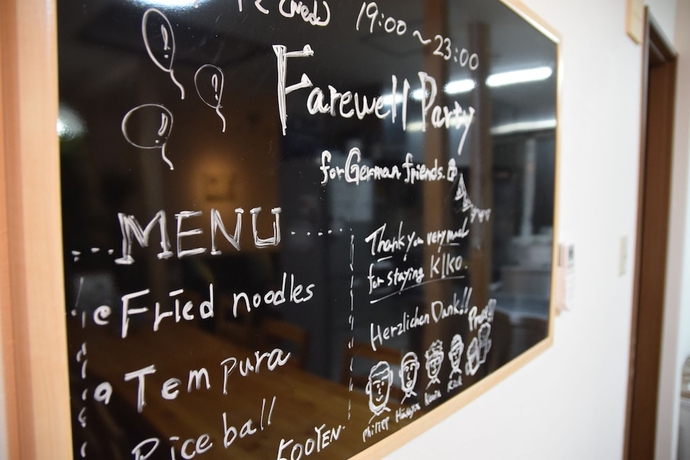 (Wed) 19:00~23:00
Farewell Party
for German friends.
MENU
Fried noodles
Tempura
Rice ball
Thank you very much
for staying KIKO.
Herzlichen Dank!!